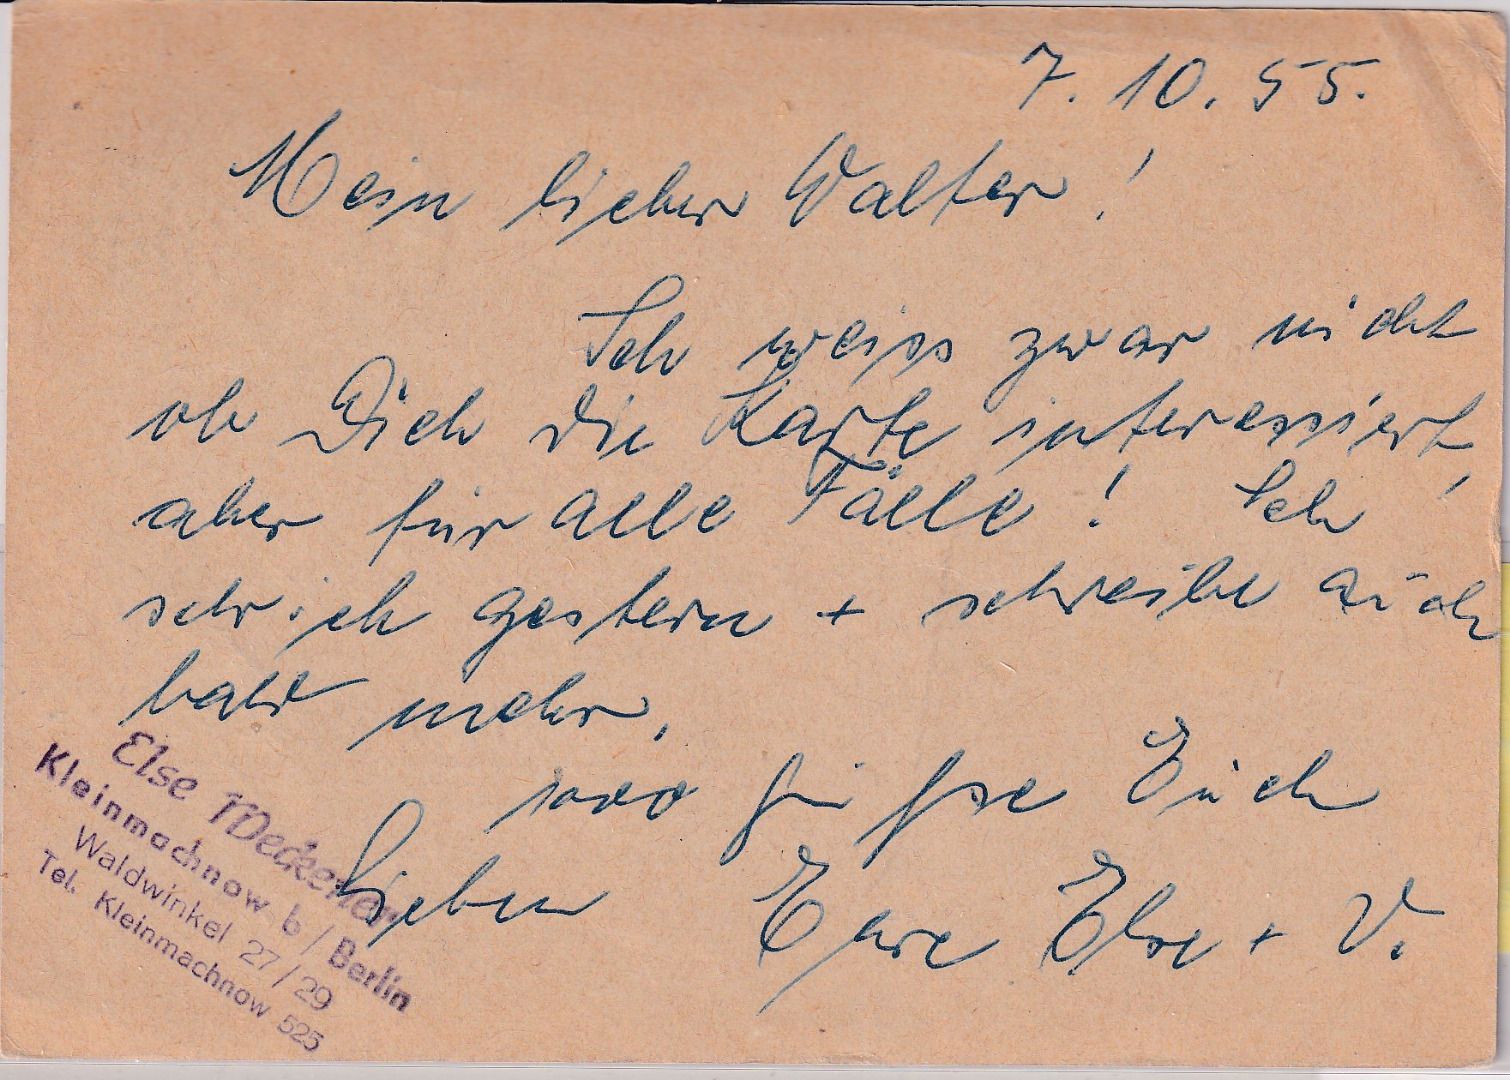 7.10.55.
Mein lieber Walter!
Ich weiss zwar nicht
ob Dich die Karte interessiert,
aber für alle Fälle! Ich
schrieb gestern + schreibe auch
bald mehr.
1000 Grüsse Euch
Lieben Eure Else + V.
Else
Kleinmachnow b/Berlin
Waldwinkel 27/29
Tel. Kleinmachnow 525